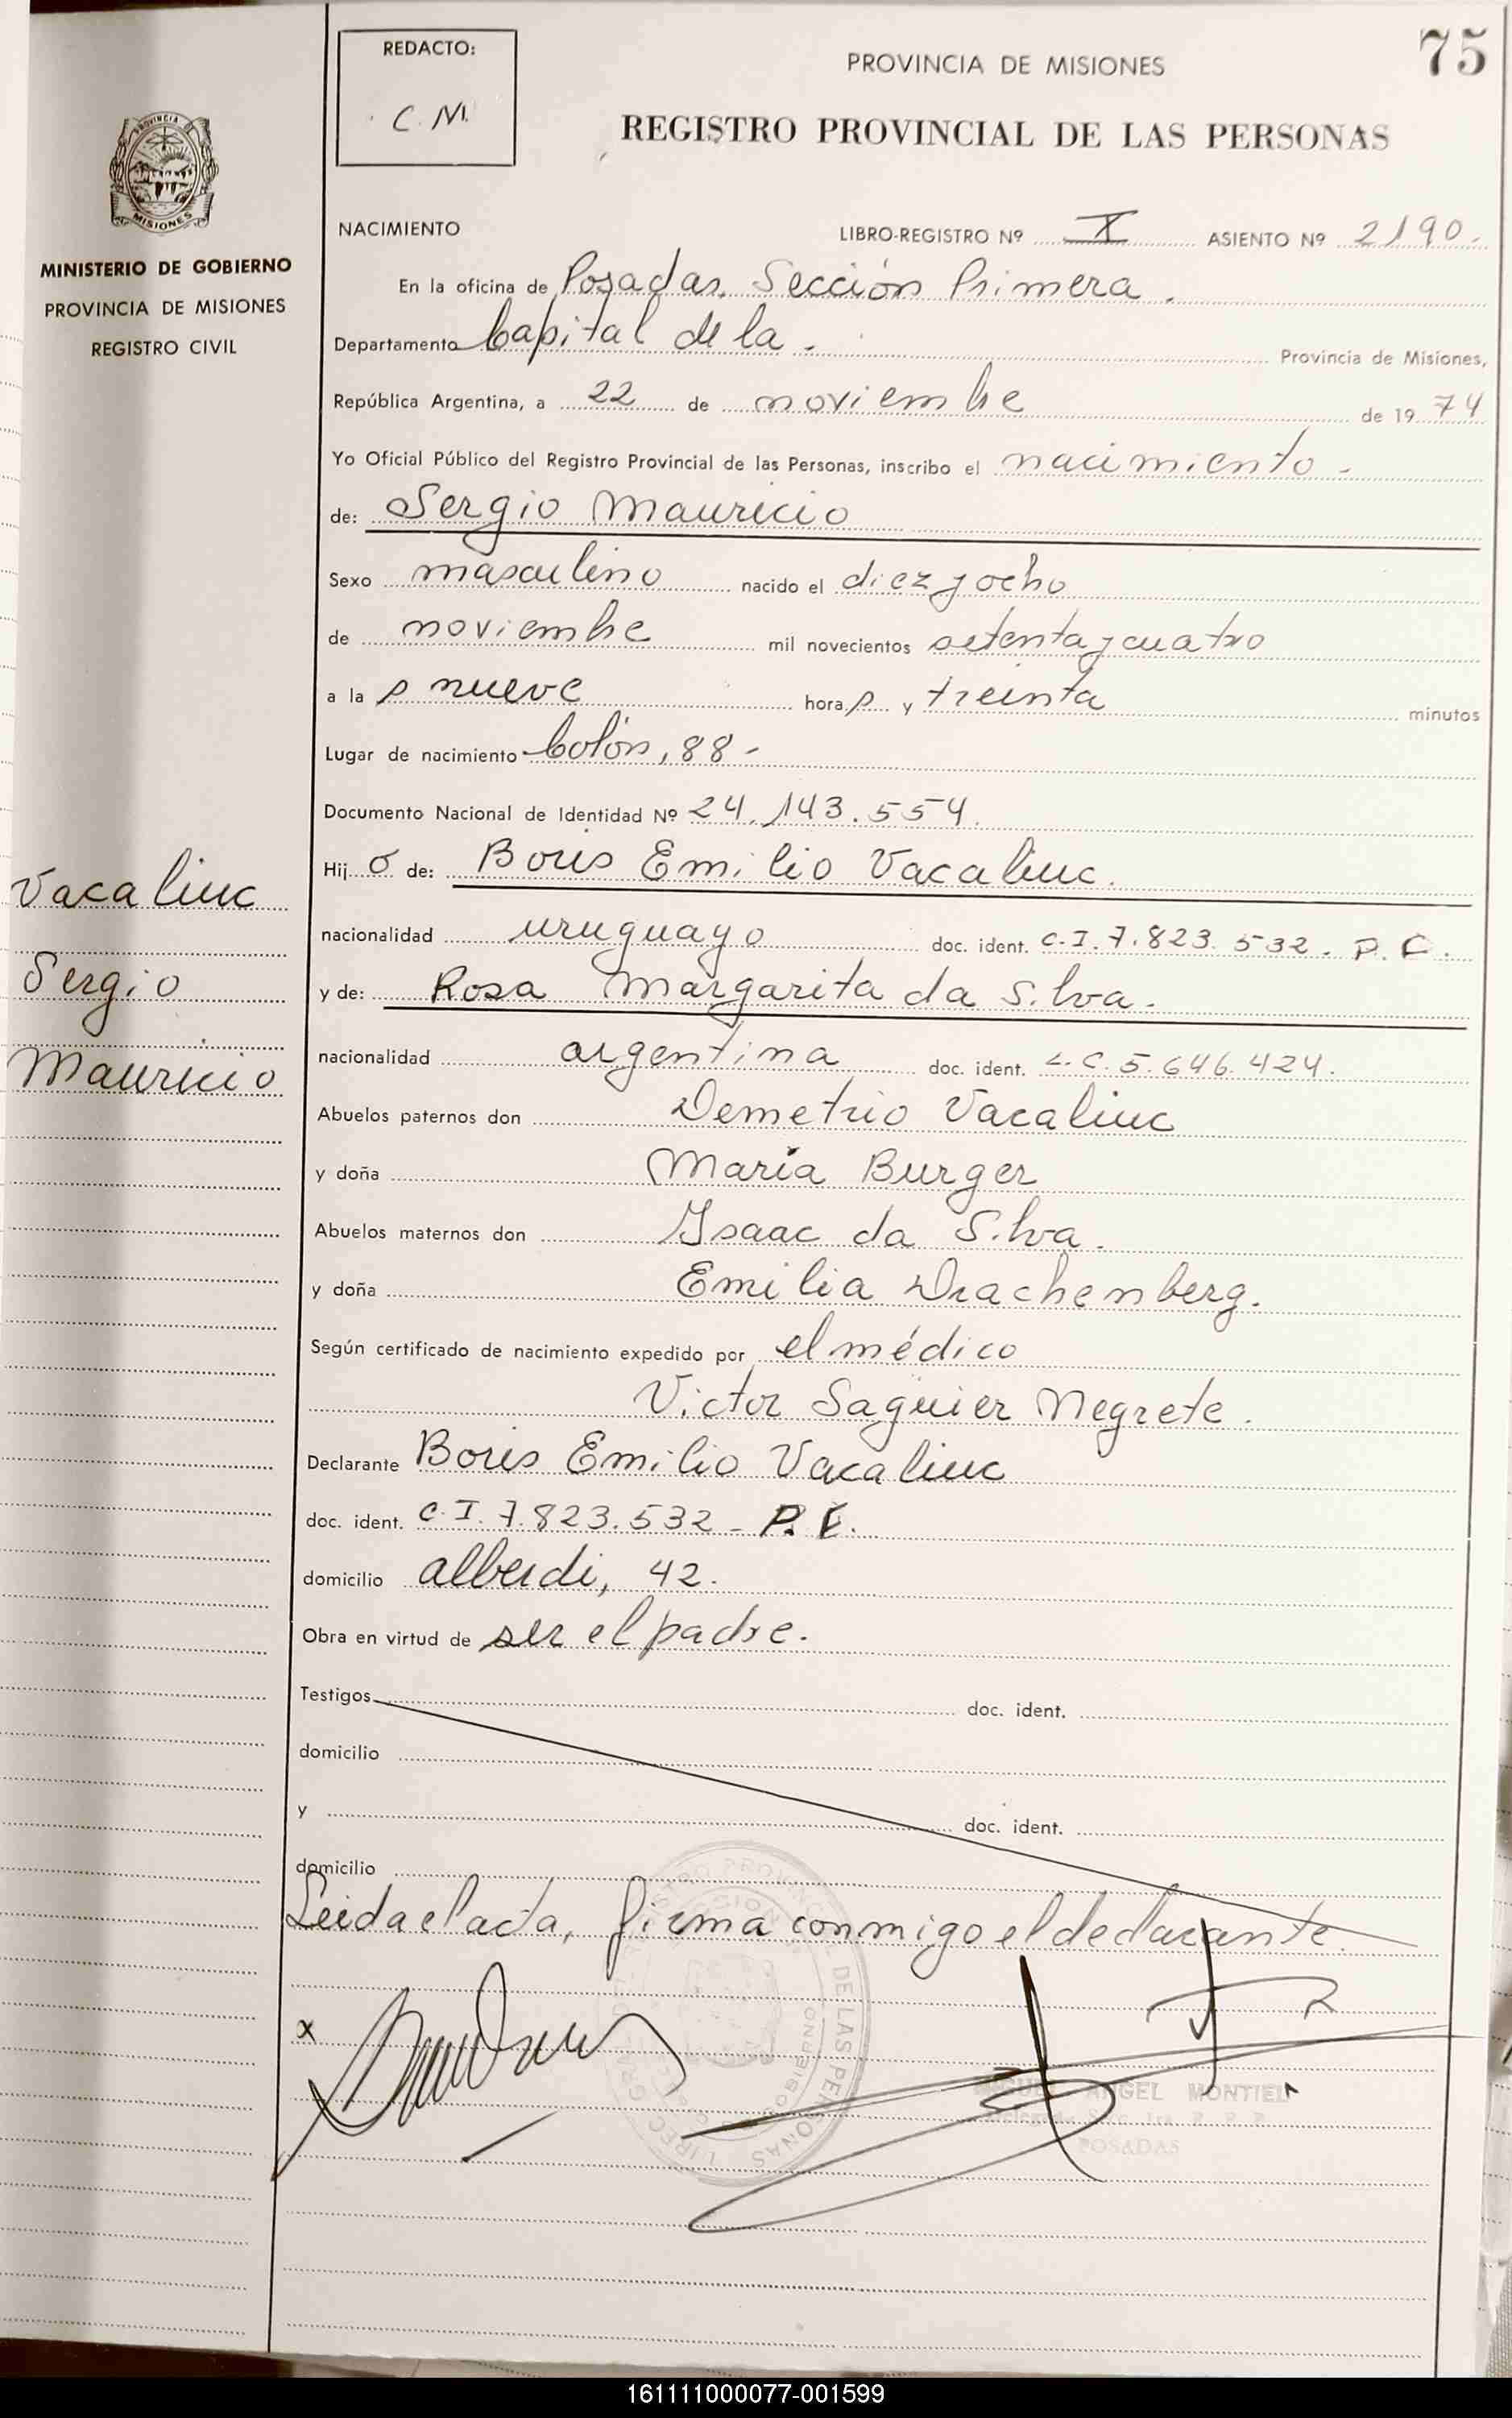 75
REDACTO:
C. M.
PROVINCIA DE MISIONES
REGISTRO PROVINCIAL DE LAS PERSONAS
PROVINCIA
MISIONES
MINISTERIO DE GOBIERNO
PROVINCIA DE MISIONES
REGISTRO CIVIL
NACIMIENTO LIBRO-REGISTRO Nº X ASIENTO Nº 2190.
En la oficina de Posadas, Sección Primera.
Departamento Capital de la. Provincia de Misiones,
República Argentina, a 22 de noviembre de 1974
Yo Oficial Público del Registro Provincial de las Personas, inscribo el nacimiento.
de: Sergio Mauricio
Sexo masculino nacido el diez y ocho
de noviembre mil novecientos setenta y cuatro
a la s nueve hora s y treinta minutos
Lugar de nacimiento Colón, 88-
Documento Nacional de Identidad Nº 24.143.554.
Hij o de: Boris Emilio Vacaliuc.
nacionalidad uruguayo doc. ident. C.I. 7.823.532. P.F.
y de: Rosa Margarita da Silva.
nacionalidad argentina doc. ident. L.C. 5.646.424.
Abuelos paternos don Demetrio Vacaliuc
y doña María Burger
Abuelos maternos don Isaac da Silva.
y doña Emilia Drachemberg.
Según certificado de nacimiento expedido por el médico
Victor Saguier Negrete.
Declarante Boris Emilio Vacaliuc
doc. ident. C.I. 7.823.532 - P.F.
domicilio Alberdi, 42.
Obra en virtud de ser el padre.
Testigos doc. ident.
domicilio
y doc. ident.
domicilio
Leida el acta, firma conmigo el declarante.
x
Vacaliuc
Sergio
Mauricio
MIGUEL ANGEL MONTIEL
POSADAS
161111000077-001599